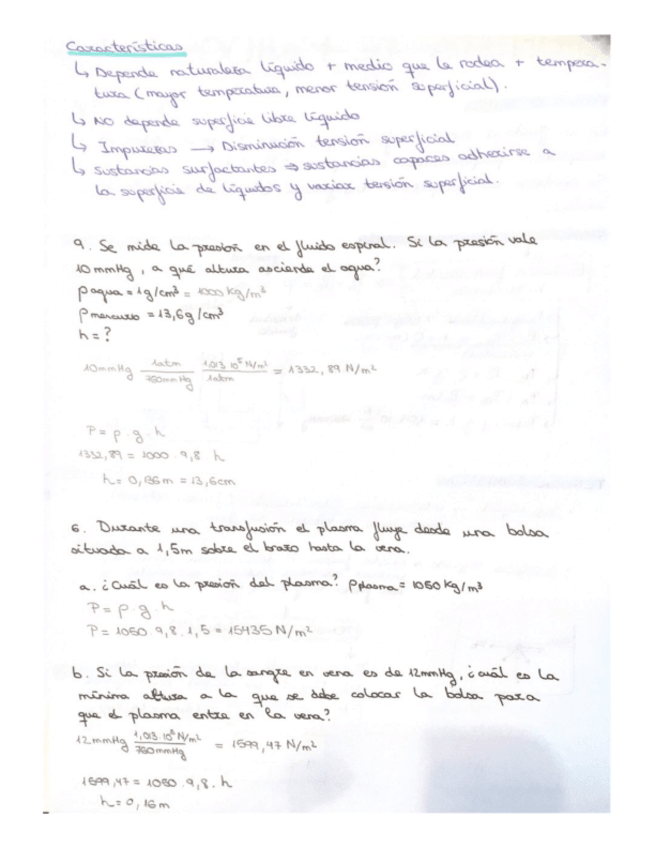 Características
↳ Depende naturaleza líquido + medio que la rodea + tempera-
tura (mayor temperatura, menor tensión superficial).
↳ NO depende superficie libre líquido
↳ Impurezas → Disminución tensión superficial
↳ Sustancias surfactantes ⇒ sustancias capaces adherirse a
la superficie de líquidos y variar tensión superficial.
9. Se mide la presión en el fluido espinal. Si la presión vale
10 mmHg, a qué altura asciende el agua?
ρ agua = 1g/cm³ = 1000 Kg/m³
ρ mercurio = 13,6g/cm³
h = ?
10mmHg 1atm/760mmHg 1,013·10⁵ N/m²/1atm = 1332,89 N/m²
P = ρ · g · h
1332,89 = 1000 · 9,8 h
h = 0,136m = 13,6cm
6. Durante una transfusión el plasma fluye desde una bolsa
situada a 1,5m sobre el brazo hasta la vena.
a. ¿Cuál es la presión del plasma? ρ plasma = 1050 Kg/m³
P = ρ · g · h
P = 1050 · 9,8 · 1,5 = 15435 N/m²
b. Si la presión de la sangre en vena es de 12mmHg, ¿cuál es la
mínima altura a la que se debe colocar la bolsa para
que el plasma entre en la vena?
12mmHg 1,013·10⁵ N/m²/760mmHg = 1599,47 N/m²
1599,47 = 1050 · 9,8 · h
h = 0,16m